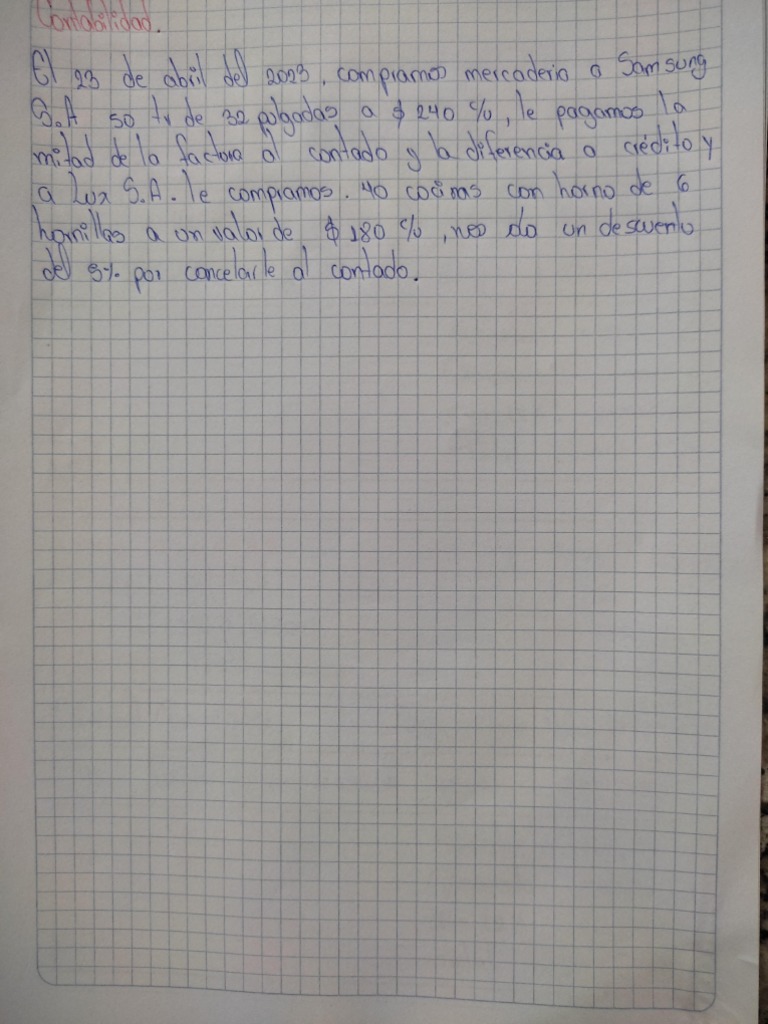 Contabilidad.
El 23 de abril del 2023, compramos mercaderia a Samsung
S.A 50 tv de 32 pulgadas a $ 240 %, le pagamos la
mitad de la factura al contado y la diferencia a crédito y
a Lux S.A. le compramos. 40 cocinas con horno de 6
hornillas a un valor de $ 180 %, nos da un descuento
del 5% por cancelarle al contado.